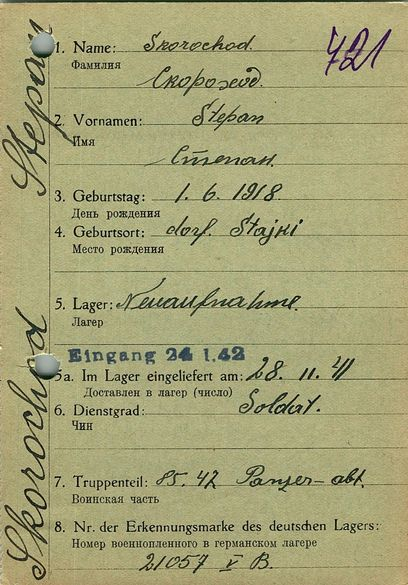 Skorochod Stepan
721
1. Name: Skorochod.
Фамилия
Скороход
2. Vornamen: Stepan
Имя
Степан.
3. Geburtstag: 1. 6. 1918.
День рождения
4. Geburtsort: dorf. Stajki
Место рождения
5. Lager: Neuaufnahme.
Лагер
Eingang 24 1.42
5a. Im Lager eingeliefert am: 28. 11. 41
Доставлен в лагер (число)
6. Dienstgrad: Soldat.
Чин
7. Truppenteil: 85. 42 Panzer-abt.
Воинская часть
8. Nr. der Erkennungsmarke des deutschen Lagers:
Номер военнопленного в германском лагере
21057 V B.